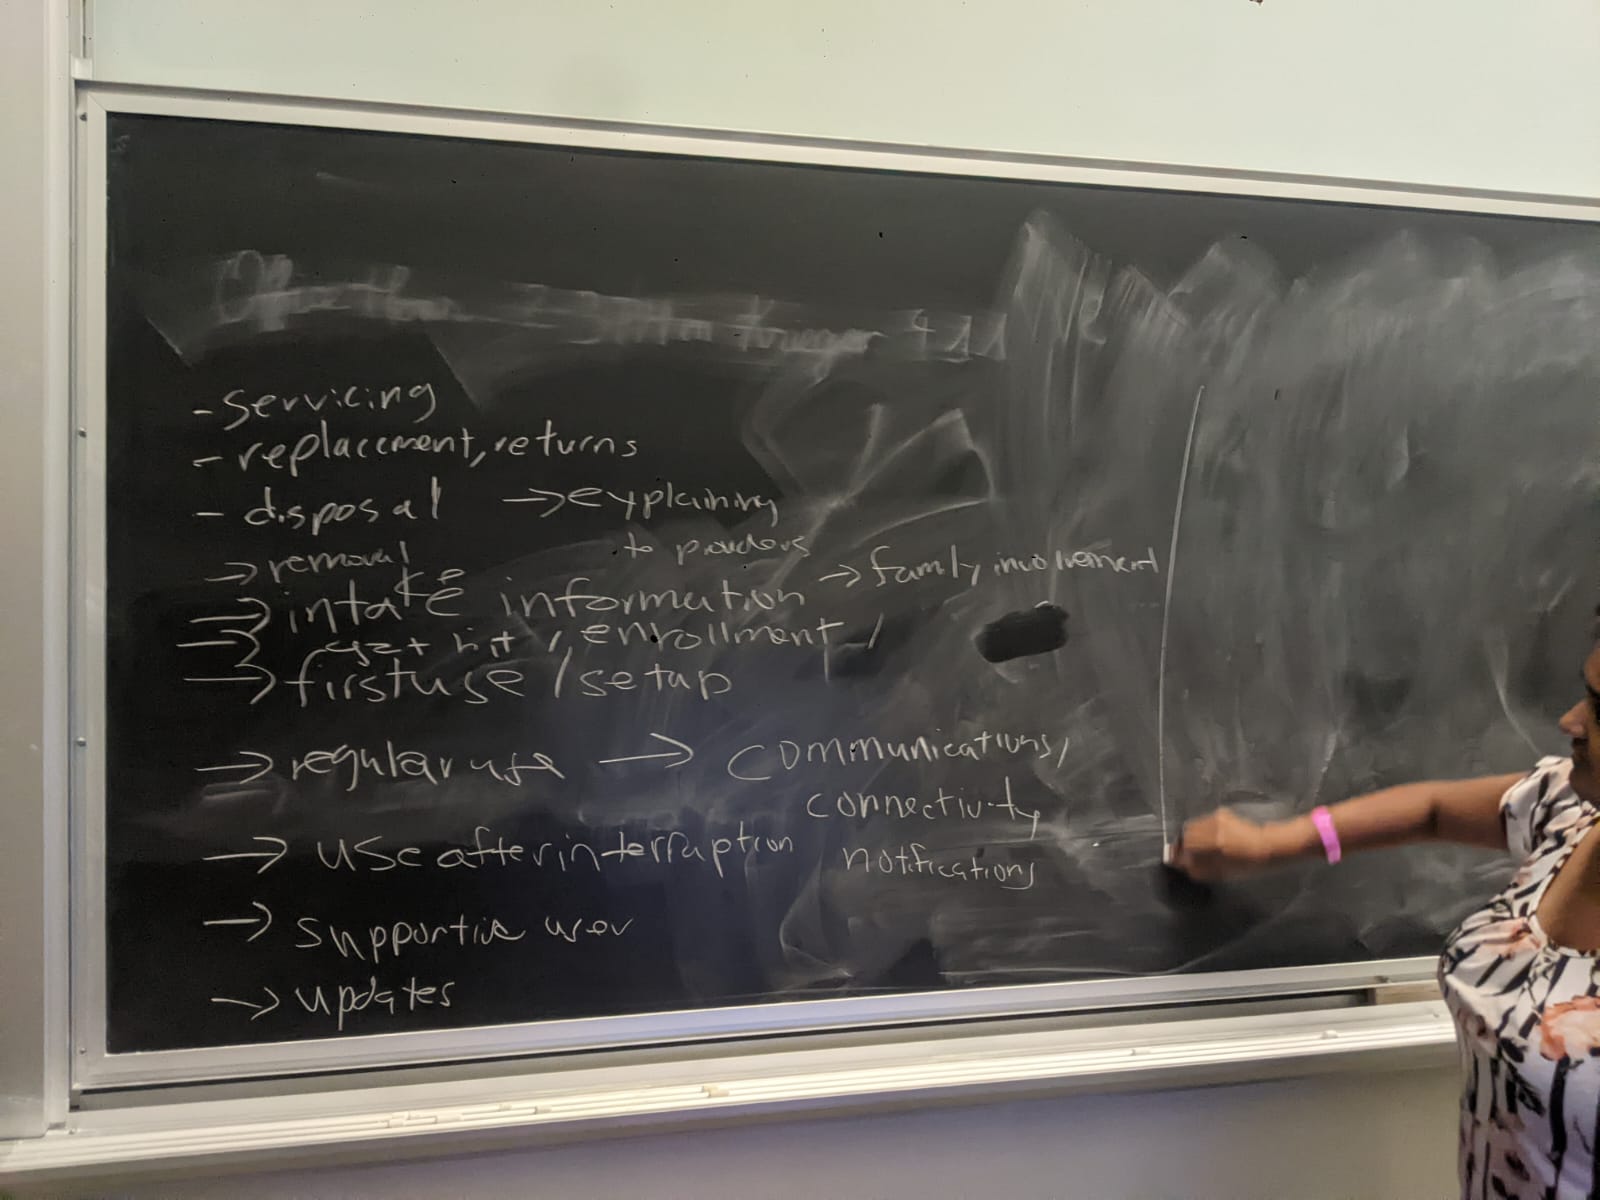 - servicing
- replacement, returns
- disposal → explaining
to providers
→ removal
→ intake information → family involvement
→ get kit /, enrollment /
→ first use / setup
→ regular use → communications,
connectivity
notifications
→ use after interruption
→ supportive user
→ updates